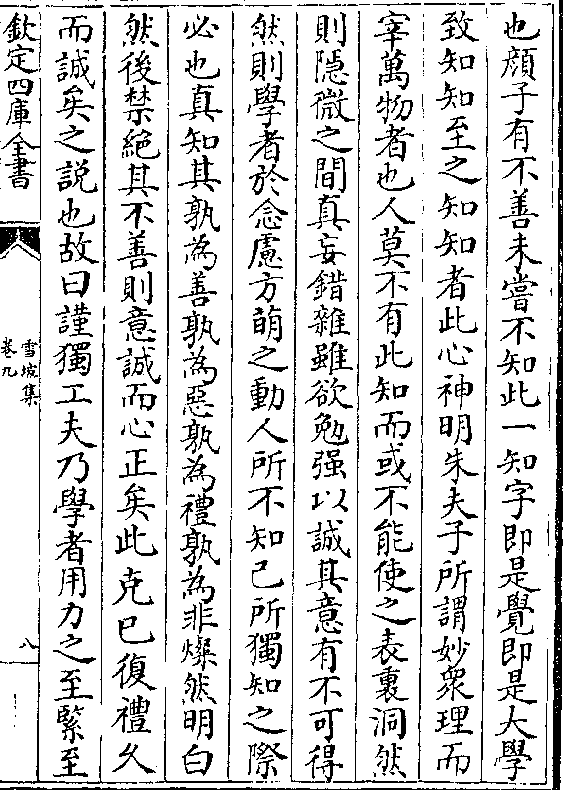 也顔子有不善未嘗不知此一知字即是覺即是大學
致知知至之知知者此心神明朱夫子所謂妙衆理而
宰萬物者也人莫不有此知而或不能使之表裏洞然
則隠微之間真妄錯雜雖欲勉强以誠其意有不可得
然則學者於念慮方萌之動人所不知己所獨知之際
必也真知其孰為善孰為惡孰為禮孰為非燦然明白
然後禁絶其不善則意誠而心正矣此克已復禮久
而誠矣之説也故曰謹獨工夫乃學者用力之至緊至
欽定四庫全書
雪坡集
卷九
八